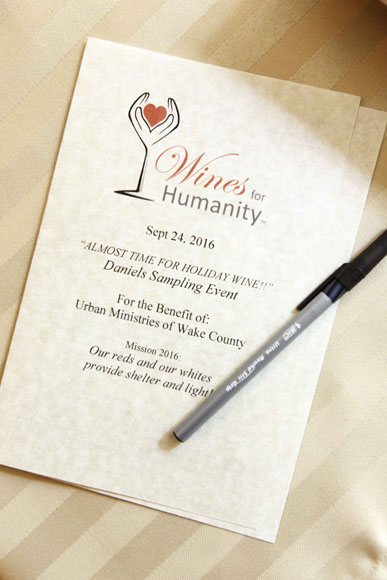 Wines for
Humanity™
Sept 24, 2016
"ALMOST TIME FOR HOLIDAY WINE!!"
Daniels Sampling Event
For the Benefit of:
Urban Ministries of Wake County
Mission 2016:
Our reds and our whites
provide shelter and light!
BIC